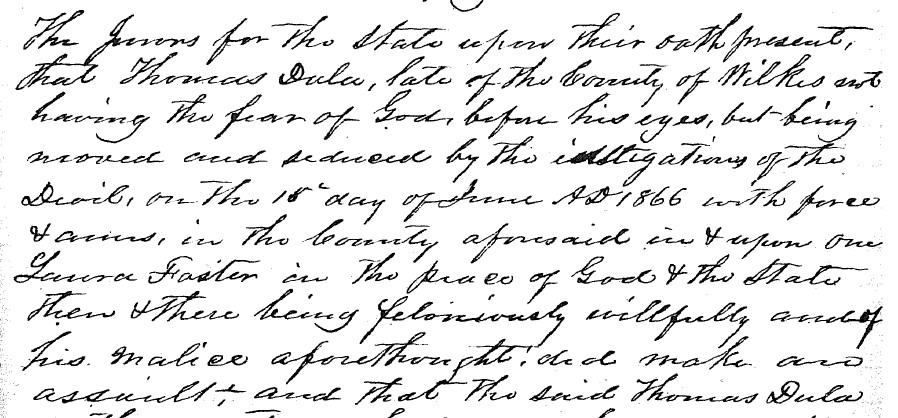 The Jurors for the State upon their oath present,
that Thomas Dula, late of the County of Wilkes not
having the fear of God, before his eyes, but being
moved and seduced by the instigations of the
Devil, on the 18th day of June AD 1866 with force
& arms, in the County aforesaid in & upon one
Laura Foster in the peace of God & the State
then & there being feloniously willfully and of
his malice aforethought did make an
assault, and that the said Thomas Dula